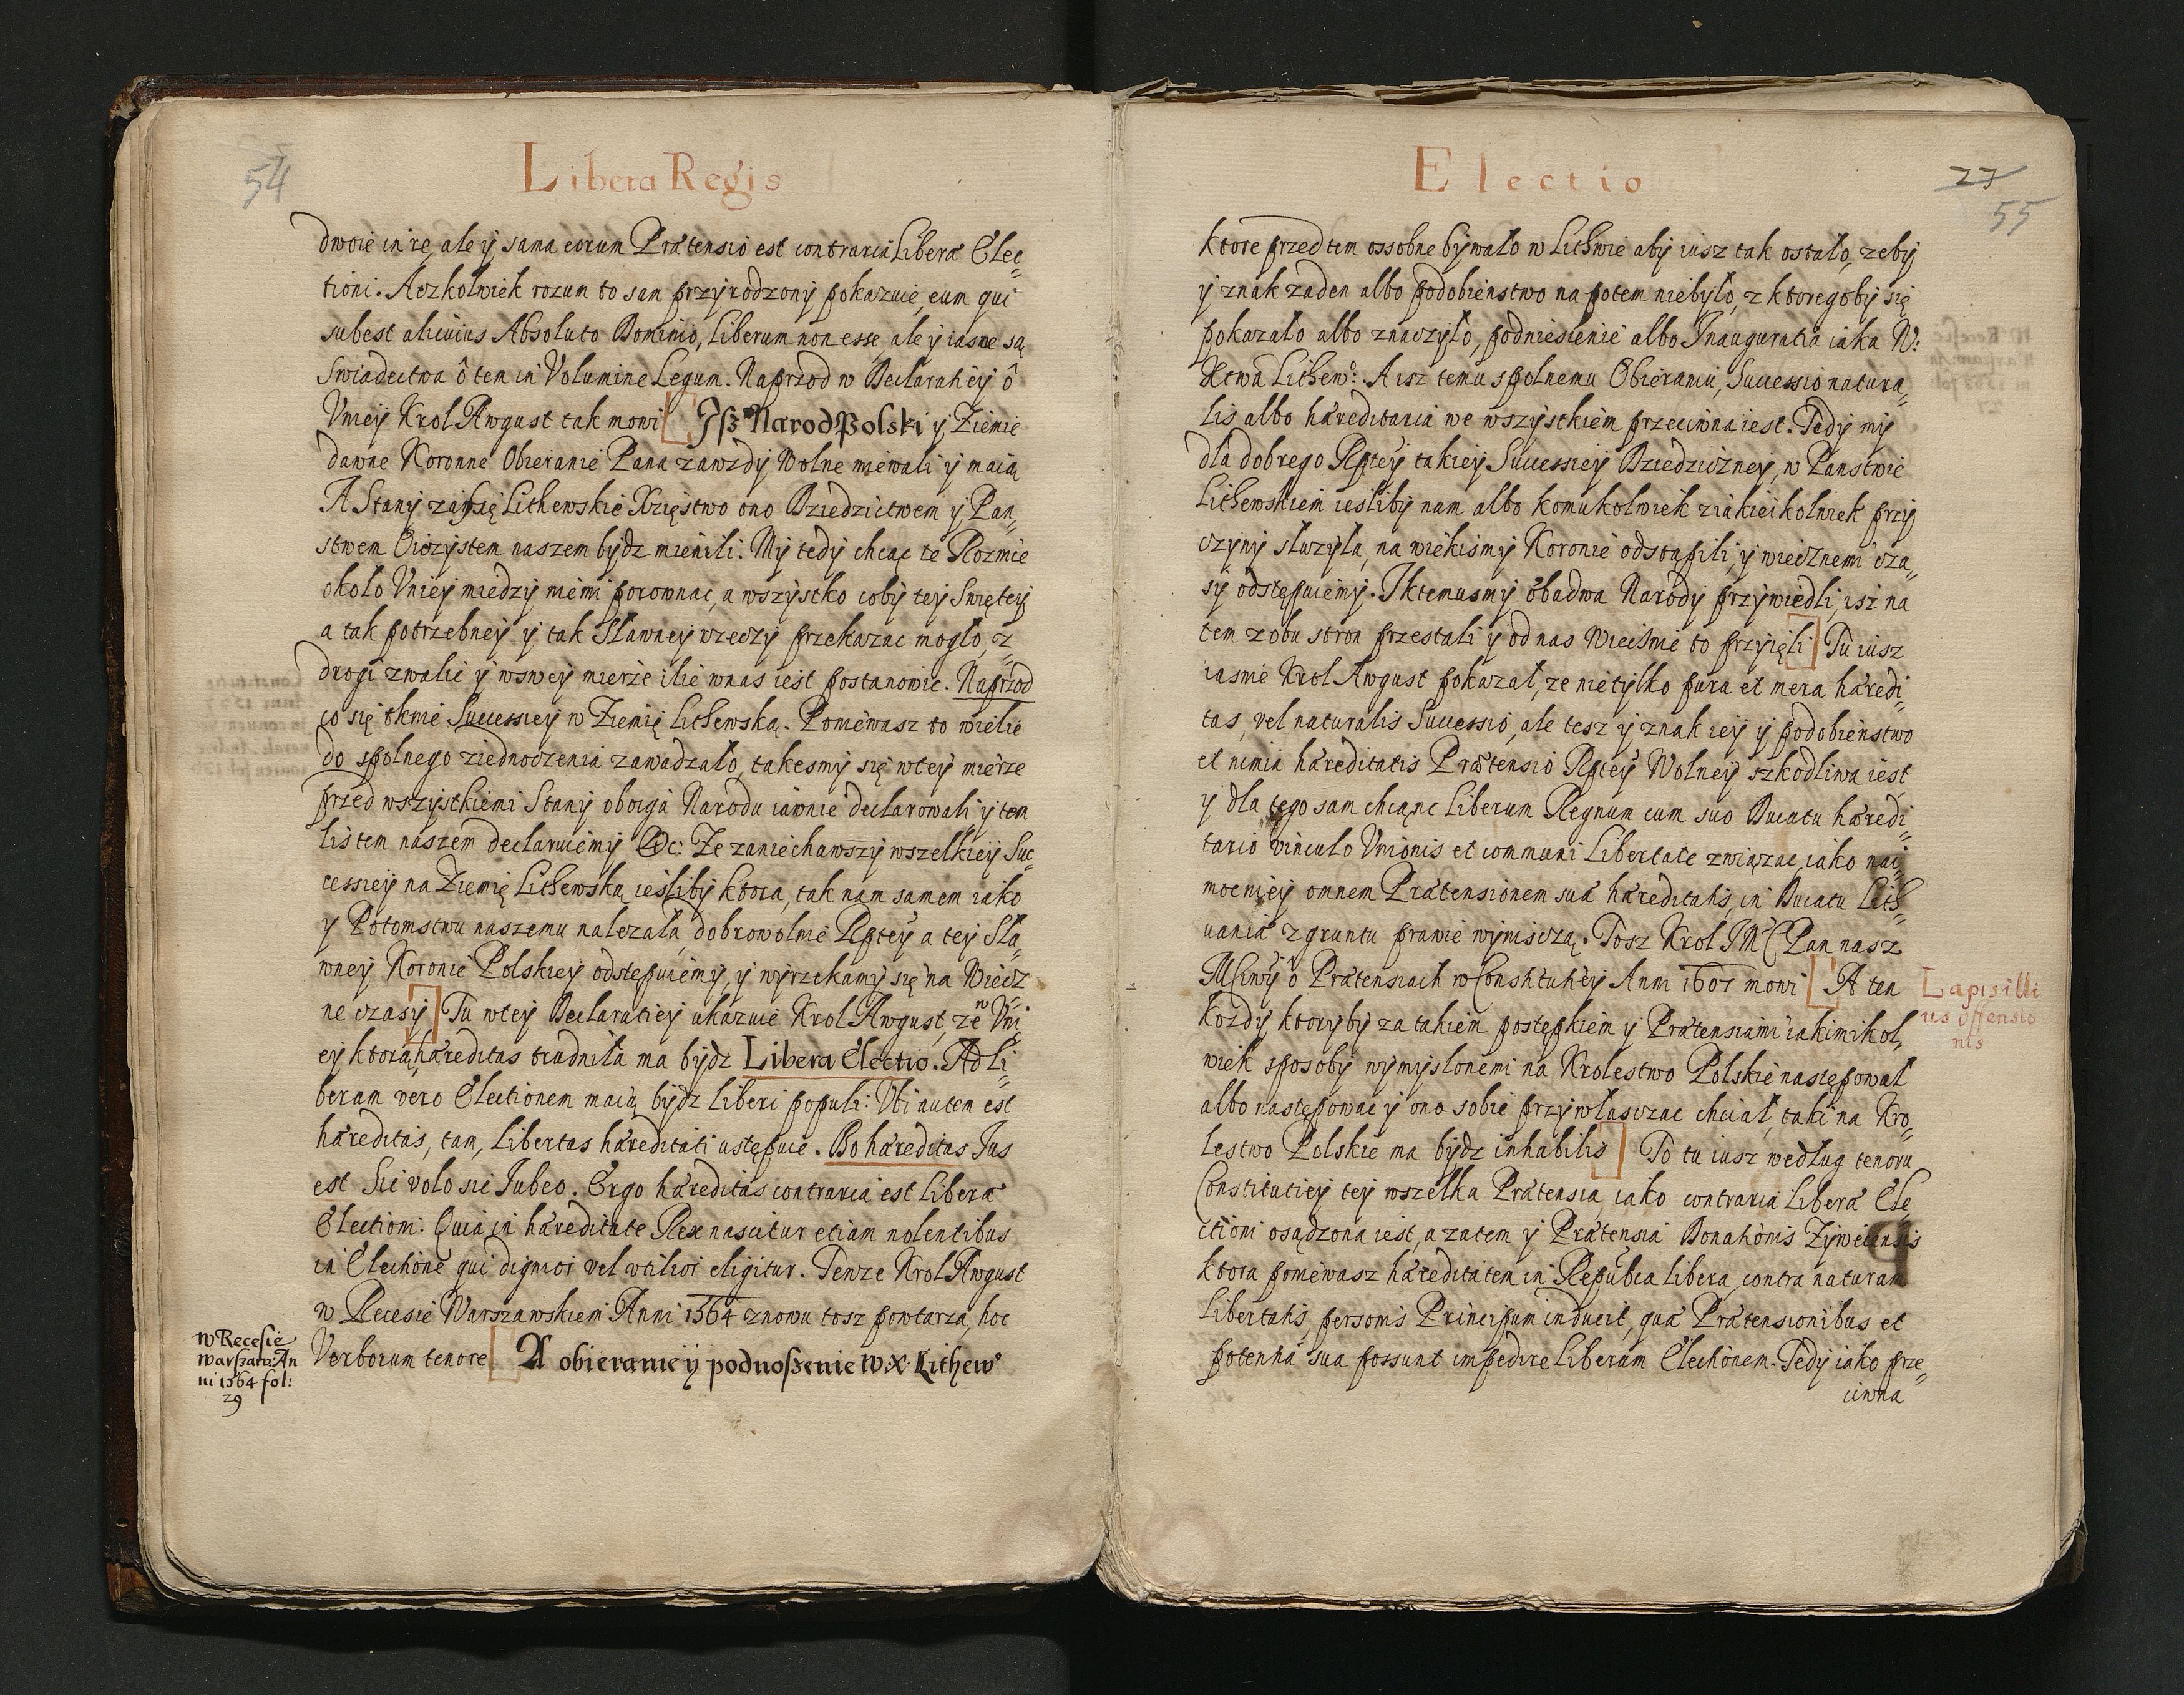 54
Libera Regis
dwoie in re, ale y sama eorum Prætensio est contraria Liberæ Elec=
tioni. Aczkolwiek rozum to sam przyrodzony pokazuie, eum qui
subest alicuius Absoluto Dominio, Liberum non esse, ale y iasne są
Swiadectwa ô tem in Volumine Legum. Naprzod w Declaratiey ô
Vniey Krol Awgust tak mowi [ Jß Narod Polski y Ziemie
dawne Koronne Obieranie Pana zawzdy Wolne miewali y maią
A Stany zaßię Lithewskie Xzięstwo ono Dziedzictwem y Pan=
stwem Oiczystem naszem bydz mienili. My tedy chcąc te Rozmie
około Vniey miedzy niemi porownac, a wszystko coby tey Swiętey
a tak potrzebney y tak Sławney rzeczy przekazac mogło, z=
drogi zwalic y wswey mierze ilie wnas iest postanowic. Naprzod
co się tknie Successiey w Ziemię Lithewską. Poniewasz to wielie
do spolnego ziednoczenia zawadzało, takesmy się wtey mierze
przed wszystkiemi Stany oboiga Narodu iawnie declarowali, y tem
listem naszem declaruiemy &c: Ze zaniechawszy wszelkiey Suc=
cessiey na Ziemię Lithewską iesliby ktora, tak nam samem iako
y Potomstwu naszemu nalezała, dobrowolnie Rptey a tey Sła=
wney Koronie Polskiey odstępuiemy, y wyrzekamy się na Wiecz
ne czasy ] Tu wtey Declaratiey ukazuie Krol Awgust, ze w Vni=
ey ktorą hæreditas trudniła ma bydz Libera Electio. Ad Li=
beram vero Electionem maią bydz liberi populi: Vbi autem est
hæreditas, tam, Libertas hæreditati ustępuie. Bo hæreditas Jus
est Sic volo sic Jubeo. Ergo hæreditas contraria est Liberæ
Electioni. Quia in hæreditate Rex nascitur etiam nolentibus
in Electione qui dignior vel vtilior eligitur. Tenze Krol Awgust
w Recesie Warszawskiem Anni 1564 znowu tosz powtarza, hoc
Verborum tenore [ A obieranie y podnoßenie W.X. Lithew°
w Recesie
Warßaw: An
ni 1564 fol:
29
Electio
27
55
ktore przed tem ossobne bywało w Lithwie aby iusz tak ostało, zeby
y znak zaden albo podobienstwo na potem niebyło, z ktoregoby się
pokazało albo znaczyło, podniesienie albo Inauguratia iaka W:
Xtwa Lithew°: A isz temu spolnemu Obieraniu, Successio natura=
lis albo hæreditaria we wszystkiem przeciwna iest. Tedy my
dla dobrego Rptey takiey Successiey Dziedziczney, w Panstwie
Lithewskiem iesliby nam albo komukolwiek z iakieikolwiek przy
czyny słuzyła, na wiekismy Koronie odstąpili, y wiecznemi cza=
sy odstępuiemy. I ktemusmy obadwa Narody przywiedli, isz na
tem z obu stron przestali y od nas Wiecsnie to przyięli ] Tu iusz
iasnie Krol Awgust pokazał, ze nie tylko pura et mera hæredi=
tas, vel naturalis Successio, ale tesz y znak iey y podobienstwo
et nimia hæreditatis Prætensio Rptey Wolney szkodliwa iest
y dla tego sam chcąnc Liberum Regnum cum suo Ducatu hæredi=
tario vinculo Vnionis et communi Libertate związac, iako nai=
mocniey omnem Prætensionem suæ hæreditatis, in Ducatu Lith=
uaniæ z gruntu prawie wyniscza. Tosz Krol JMC Pan nasz
Mściwy ô Prætensiach w Constitutiey Anni 1607 mowi [ A ten
kozdy ktoryby za takiem postępkiem y Prætensiami iakimikol,
wiek sposoby wymyslonemi na Krolestwo Polskie następował
albo następowac y ono sobie przywłasczac chciał, taki na Kro,
lestwo Polskie ma bydz inhabilis ] To tu iusz według tenoru
Constitutiey tey wszelka Prætensia, iako contraria Liberæ Ele=
ctioni osądzona iest, a zatem y Prætensia Donationis Zyweicensis
ktora poniewasz hæreditatem in Repubca libera, contra naturam
Libertatis, personis Principum inducit, quæ Prætensionibus et
potentia sua possunt impedire Liberam Electionem. Tedy iako prze=
ciwna
Lapis illi
us offensio
nis